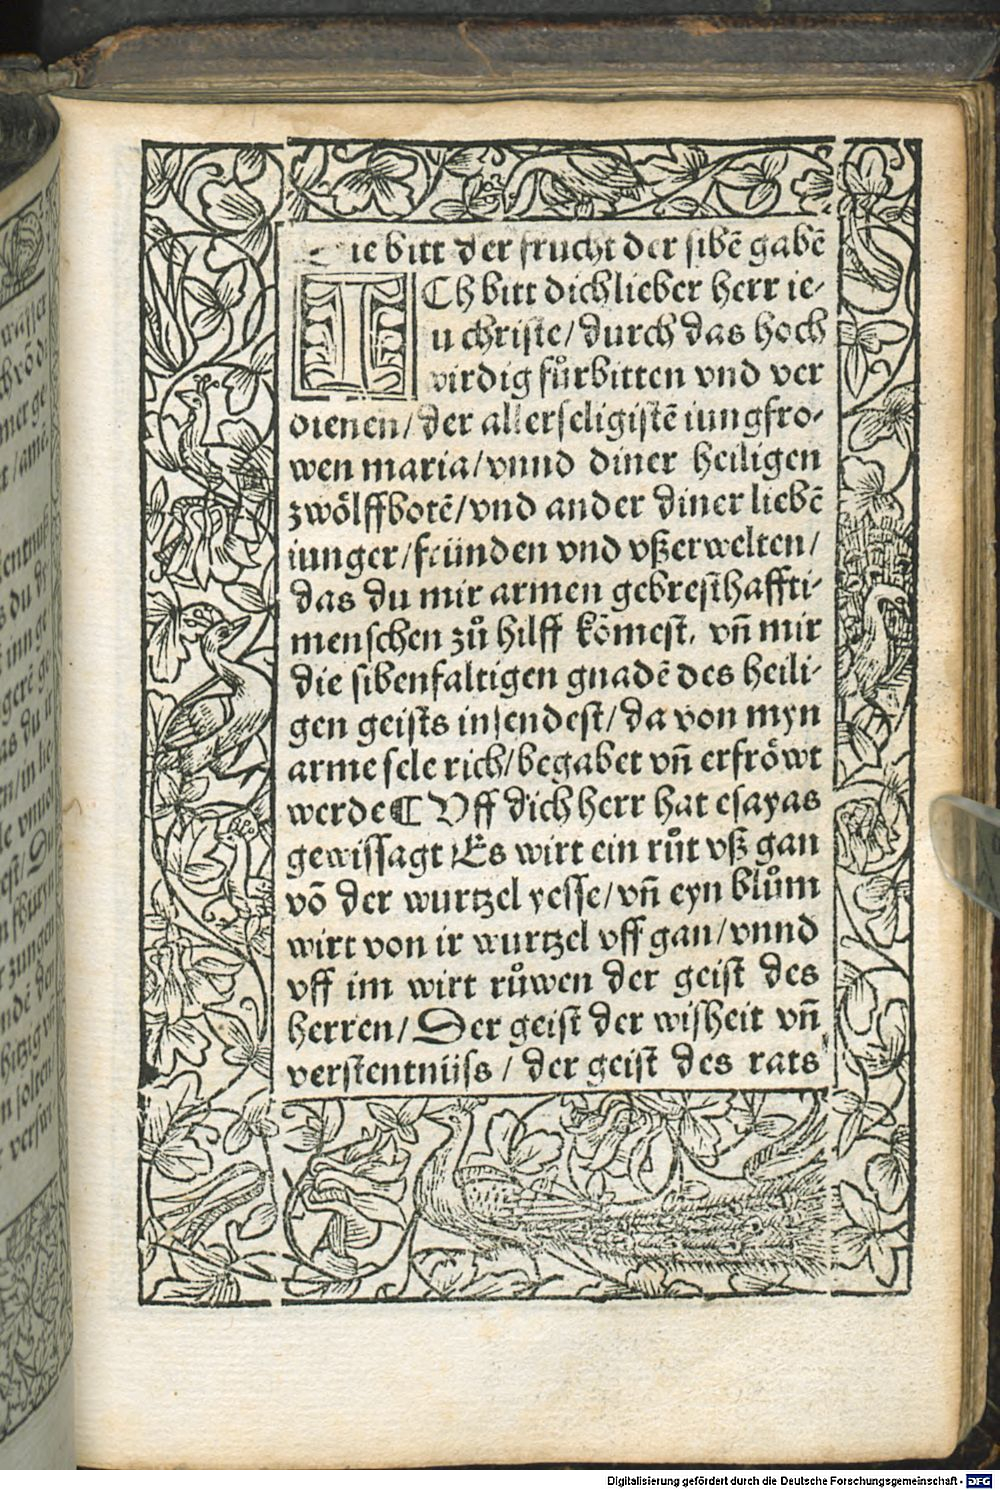 Die bitt der frucht der sibē gabē
ICh bitt dich lieber herr ie-
su christe/ durch das hoch
wirdig fůrbitten vnd ver
dienen/ der allerseligistē iungfro-
wen maria/ vnnd diner heiligen
zwoͤlffbotē/ vnd ander diner liebē
iunger/ fründen vnd vßerwelten/
das du mir armen gebresthaffti-
menschen zů hilff koͤmest, vn̄ mir
die sibenfaltigen gnadē des heili-
gen geists insendest/ da von myn
arme sele rich/ begabet vn̄ erfroͤwt
werde ¶ Vff dich herr hat esayas
gewissagt Es wirt ein růt vß gan
vō der wurtzel yesse/ vn̄ eyn blům
wirt von ir wurtzel vff gan/ vnnd
vff im wirt růwen der geist des
herren/ Der geist der wisheit vn̄
verstentnüss / der geist des rats
Digitalisierung gefördert durch die Deutsche Forschungsgemeinschaft - DFG